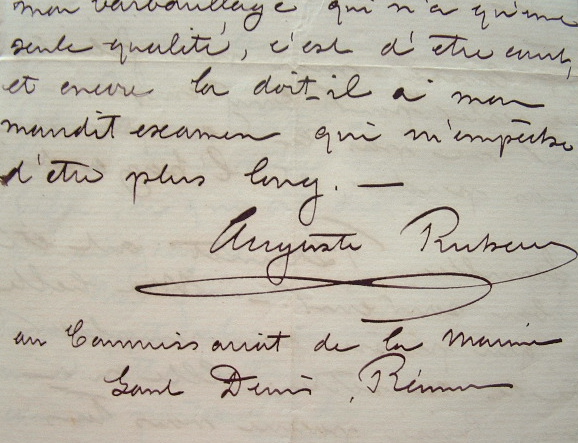 mon barbouillage qui n'a qu'une
seule qualité, c'est d'etre court,
et encore la doit-il a mon
maudit examen qui m'empêche
d'etre plus long. —
Auguste
au Commissariat de la Marine
Saint Denis, Réunion